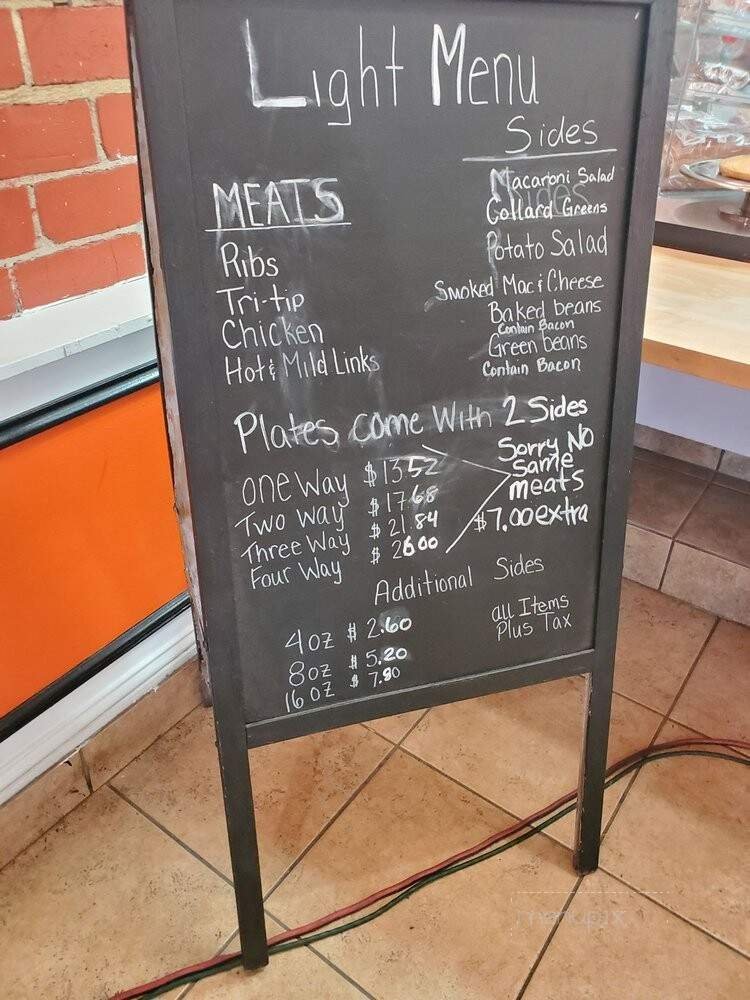 Light Menu
MEATS
Ribs
Tri-tip
Chicken
Hot & Mild Links
Sides
Macaroni Salad
Collard Greens
Potato Salad
Smoked Mac & Cheese
Baked beans
Contain Bacon
Green beans
Contain Bacon
Plates come With 2 Sides
one Way $13.52
Two Way $17.68
Three Way $21.84
Four Way $26.00
Sorry NO
same
meats
$7.00 extra
Additional Sides
4 oz $2.60
8oz $5.20
16 oz $7.80
all Items
Plus Tax
menupix